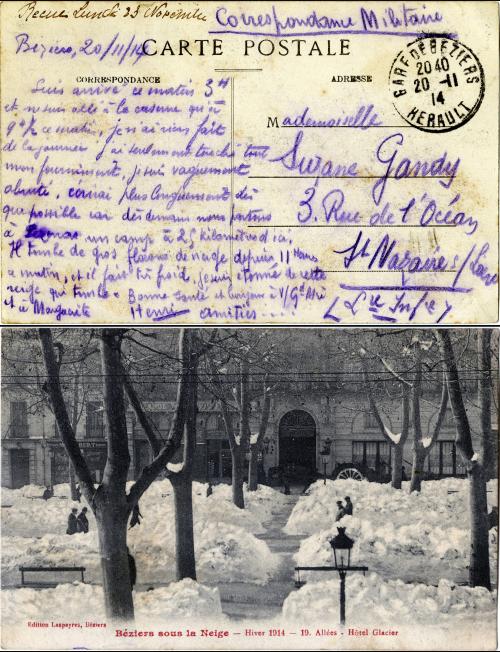 Recue Lundi 23 Novembre
Correspondance Militaire
Béziers, 20/11/14
CARTE POSTALE
CORRESPONDANCE
ADRESSE
GARE DE BEZIERS
20 40
20 -11
14
HERAULT
Suis arrivé ce matin 3H
et ne suis allé à la caserne qu'à
9h½ ce matin, je n'ai rien fait
de la journée j'ai seulement touché tout
mon fourniment, je suis vaguement
abruti, écrirai plus longuement dès
que possible car dès demain nous partons
à un camp à 25 kilomètres d'ici.
Il tombe de gros flocons de neige depuis 11 Heures
du matin, et il fait très froid, je suis étonné de cette
neige qui tombe. Bonne santé et bonjour à
et à Marguerite
Henri amitiés....
Mademoiselle
Suzane Gandy
3. Rue de l'Océan
St Nazaire s/Loire
(Lre Infre)
Edition Laspeyres, Béziers
Béziers sous la Neige — Hiver 1914 — 19. Allées - Hôtel Glacier